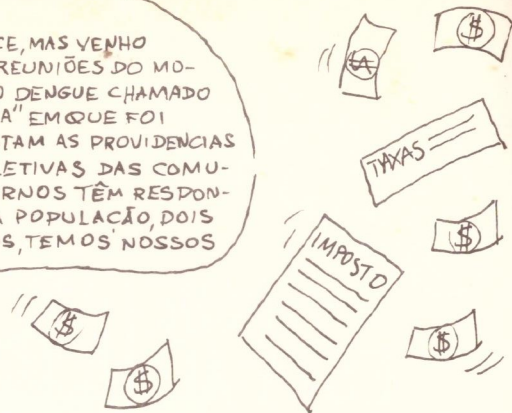 CE, MAS VENHO
REUNIÕES DO MO-
O DENGUE CHAMADO
A" EM QUE FOI
TAM AS PROVIDENCIAS
LETIVAS DAS COMU-
RNOS TÊM RESPON-
A POPULAÇÃO, DOIS
S, TEMOS NOSSOS
$
$
TAXAS
$
IMPOSTO
$
$
$